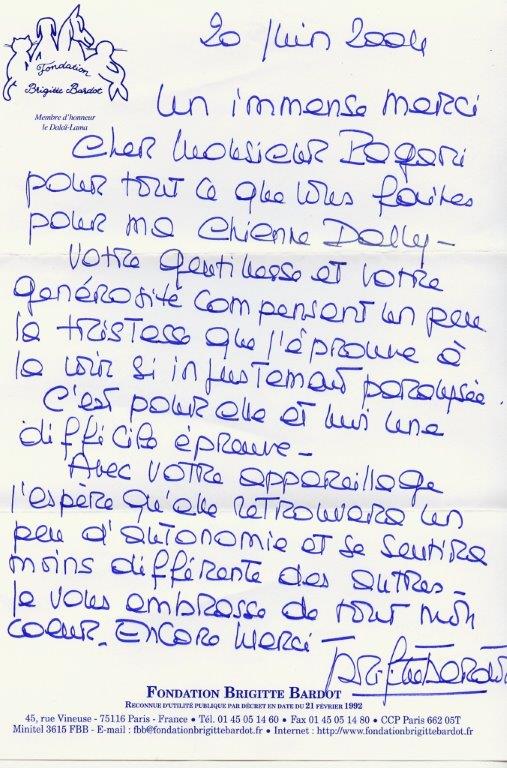 Fondation
Brigitte Bardot
Membre d'honneur
le Dalaï-Lama
20 Juin 2004
Un immense merci
Cher Monsieur Bogari
pour tout ce que vous faites
pour ma chienne Dolly -
Votre gentillesse et votre
générosité compensent un peu
la tristesse que j'éprouve à
la voir si injustement paralysée.
C'est pour elle et moi une
difficile épreuve -
Avec votre appareillage
j'espère qu'elle retrouvera un
peu d'autonomie et se sentira
moins différente des autres -
Je vous embrasse de tout mon
coeur - Encore Merci -
Brigitte Bardot
FONDATION BRIGITTE BARDOT
RECONNUE D'UTILITÉ PUBLIQUE PAR DÉCRET EN DATE DU 21 FÉVRIER 1992
45, rue Vineuse - 75116 Paris - France • Tél. 01 45 05 14 60 • Fax 01 45 05 14 80 • CCP Paris 662 05T
Minitel 3615 FBB - E-mail : fbb@fondationbrigittebardot.fr • Internet : http://www.fondationbrigittebardot.fr